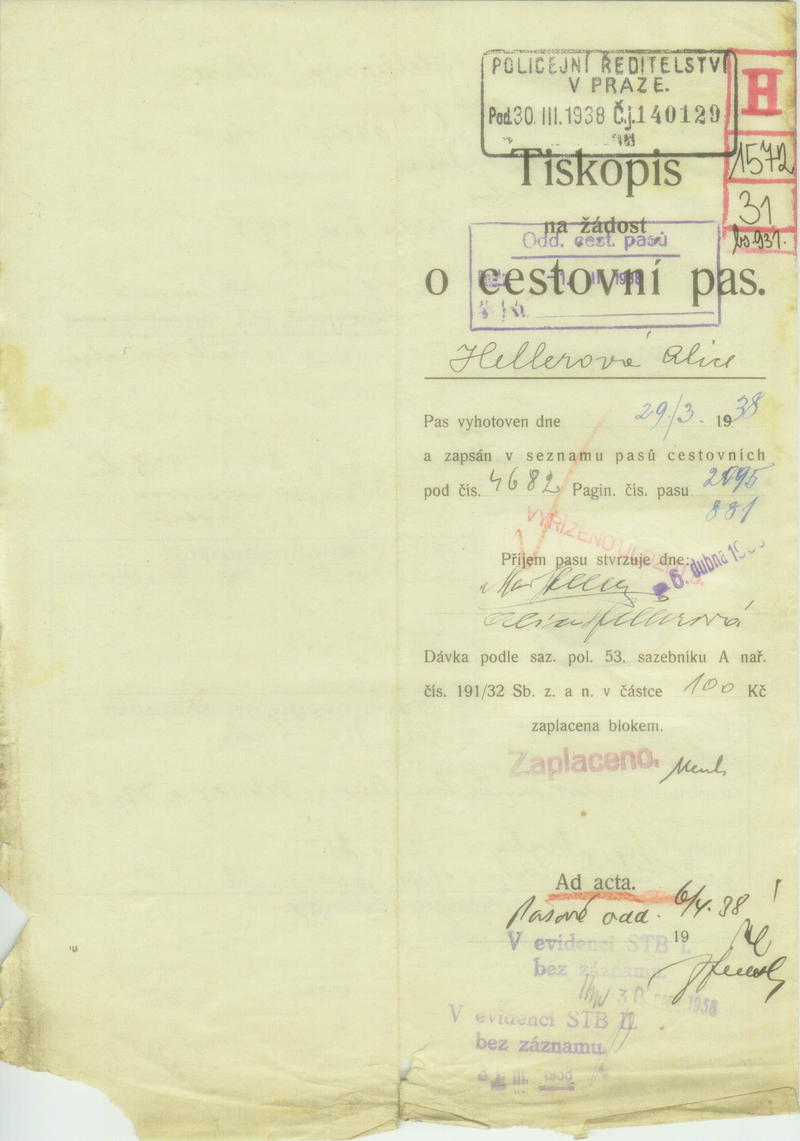 POLICEJNÍ ŘEDITELSTVÍ
V PRAZE.
Pod. 30. III. 1938 Č.j. 140129
H
1572
31
Tiskopis
na žádost
Odd. cest. pasů
o cestovní pas.
Hellerová Alice
Pas vyhotoven dne 29/3. 1938
a zapsán v seznamu pasů cestovních
pod čís. 4682 Pagin. čís. pasu 2095
881
VYŘÍZENO
Příjem pasu stvrzuje dne:
6. dubna
Hellerová
Dávka podle saz. pol. 53. sazebníku A nař.
čís. 191/32 Sb. z. a n. v částce 100 Kč
zaplacena blokem.
Zaplaceno.
Ad acta.
Pasové odd. 6/4. 38
19
V evidenci STB I.
bez záznamu.
30. 1938
V evidenci STB II.
bez záznamu.
III. 1938